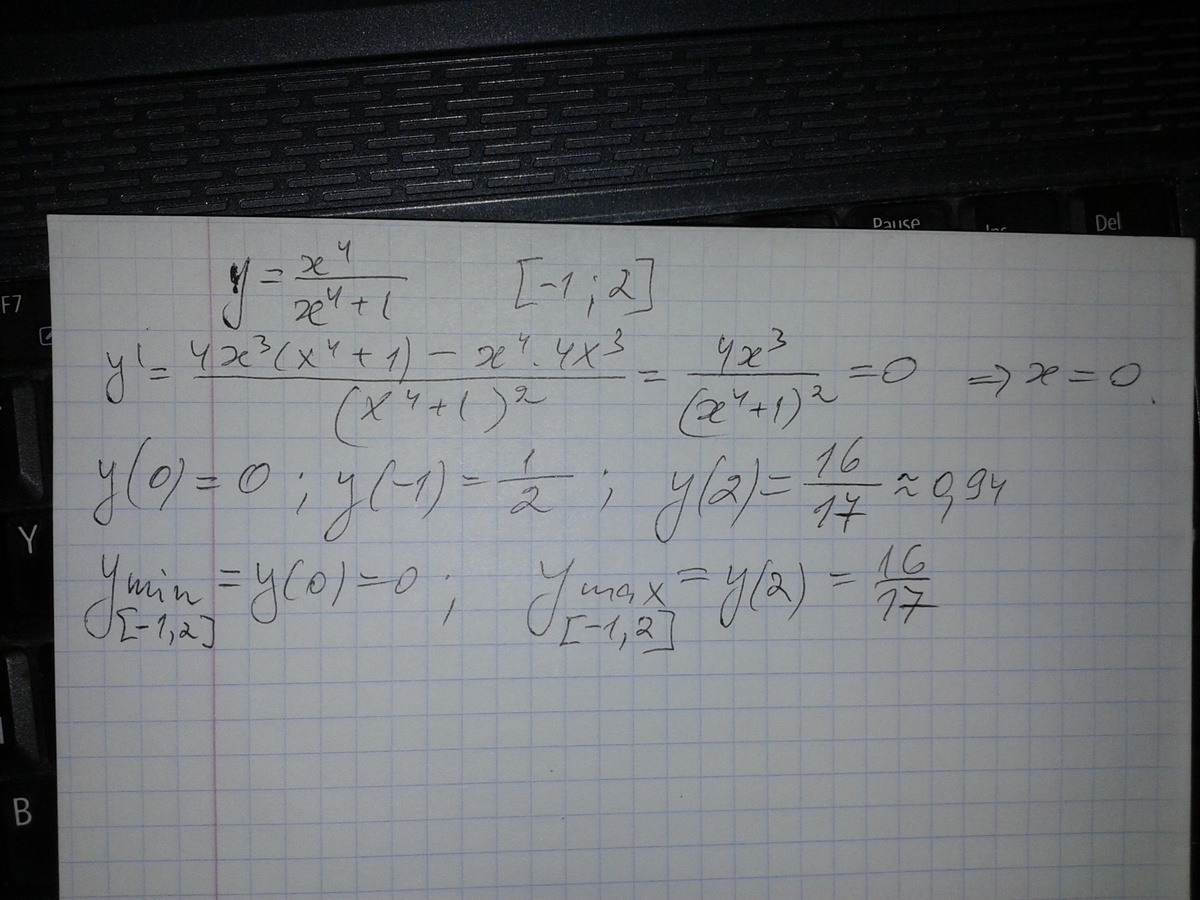 Pause
Ins
Del
F7
y = x⁴/(x⁴+1) [-1; 2]
y' = (4x³(x⁴+1) - x⁴·4x³)/(x⁴+1)² = 4x³/(x⁴+1)² = 0 ⇒ x = 0.
y(0) = 0; y(-1) = 1/2; y(2) = 16/17 ≈ 0,94
Y
y min = y(0) = 0; y max = y(2) = 16/17
[-1,2] [-1,2]
B